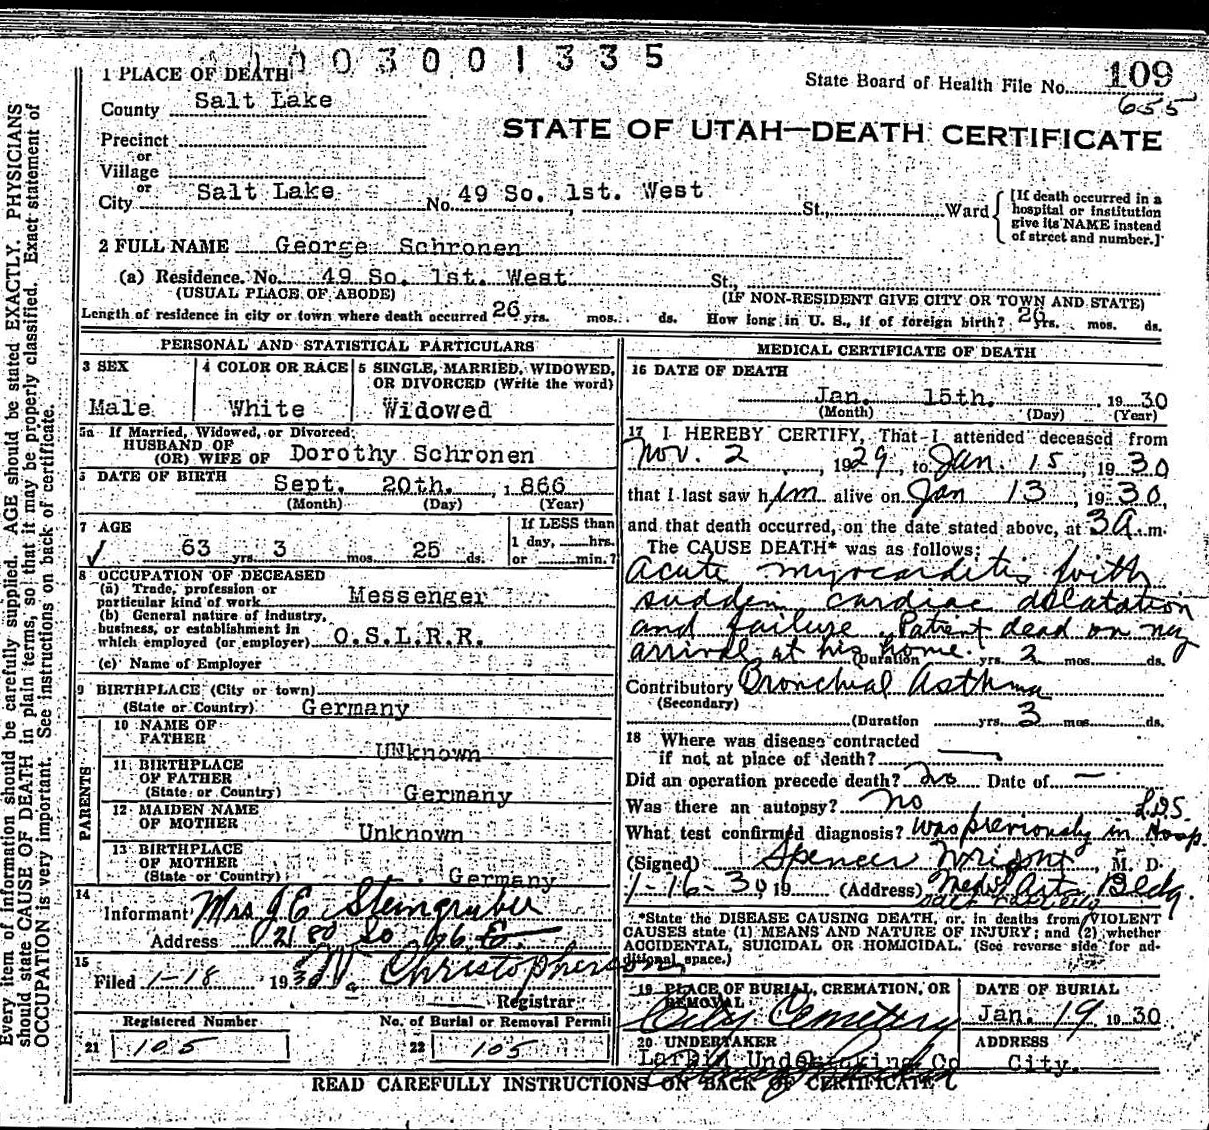 1003001335
1 PLACE OF DEATH
State Board of Health File No. 109
655
County Salt Lake
STATE OF UTAH—DEATH CERTIFICATE
Precinct
or
Village
or
City Salt Lake No. 49 So. 1st. West St., Ward
[If death occurred in a
hospital or institution
give its NAME instead
of street and number.]
2 FULL NAME George Schronen
(a) Residence. No. 49 So. 1st. West St.,
(USUAL PLACE OF ABODE) (IF NON-RESIDENT GIVE CITY OR TOWN AND STATE)
Length of residence in city or town where death occurred 26 yrs. mos. ds. How long in U. S., if of foreign birth? 26 yrs. mos. ds.
PERSONAL AND STATISTICAL PARTICULARS
3 SEX
Male
4 COLOR OR RACE
White
5 SINGLE, MARRIED, WIDOWED,
OR DIVORCED (Write the word)
Widowed
5a If Married, Widowed, or Divorced
HUSBAND OF
(OR) WIFE OF Dorothy Schronen
6 DATE OF BIRTH Sept. 20th. , 1866
(Month) (Day) (Year)
7 AGE
63 yrs. 3 mos. 25 ds.
If LESS than
1 day, hrs.
or min.?
8 OCCUPATION OF DECEASED
(a) Trade, profession or
particular kind of work Messenger
(b) General nature of industry,
business, or establishment in
which employed (or employer) O.S.L.R.R.
(c) Name of Employer
9 BIRTHPLACE (City or town)
(State or Country) Germany
PARENTS
10 NAME OF
FATHER UNknown
11 BIRTHPLACE
OF FATHER
(State or Country) Germany
12 MAIDEN NAME
OF MOTHER Unknown
13 BIRTHPLACE
OF MOTHER
(State or Country) Germany
14
Informant Mrs J E Steingruber
Address 2180 So 96 E.
15
Filed 1-18 1930 Christopherson
Registrar
Registered Number
21 105
No. of Burial or Removal Permit
22 105
MEDICAL CERTIFICATE OF DEATH
16 DATE OF DEATH
Jan. 15th. , 1930
(Month) (Day) (Year)
17 I HEREBY CERTIFY, That I attended deceased from
Nov. 2 , 1929, to Jan. 15, 1930
that I last saw him alive on Jan 13, 1930,
and that death occurred, on the date stated above, at 3 A. m.
The CAUSE DEATH* was as follows:
Acute myocarditis with
sudden cardiac dilatation
and failure. Patient dead on my
arrival at his home. (Duration yrs. 2 mos. ds.
Contributory Bronchial Asthma
(Secondary)
(Duration yrs. 3 mos. ds.
18 Where was disease contracted
if not at place of death?
Did an operation precede death? no Date of —
Was there an autopsy? no
What test confirmed diagnosis? was previously in L.D.S. Hosp.
(Signed) Spencer Wright, M. D.
1-16-30, 19 (Address) Med. Arts Bldg.
*State the DISEASE CAUSING DEATH, or, in deaths from VIOLENT
CAUSES state (1) MEANS AND NATURE OF INJURY; and (2) whether
ACCIDENTAL, SUICIDAL OR HOMICIDAL. (See reverse side for ad-
ditional space.)
19 PLACE OF BURIAL, CREMATION, OR
REMOVAL
City Cemetery
DATE OF BURIAL
Jan. 19 1930
20 UNDERTAKER
Larkin Undertaking Co
ADDRESS
City.
READ CAREFULLY INSTRUCTIONS ON BACK OF CERTIFICATE
Every item of information should be carefully supplied. AGE should be stated EXACTLY. PHYSICIANS
should state CAUSE OF DEATH in plain terms, so that it may be properly classified. Exact statement of
OCCUPATION is very important. See instructions on back of certificate.